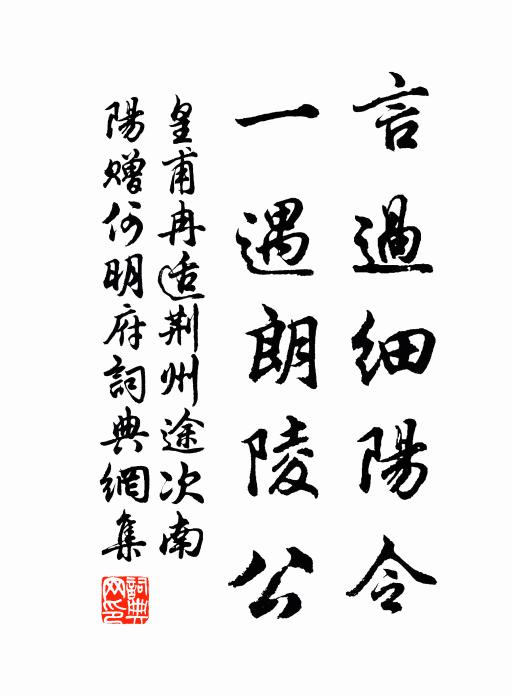 言過細陽令
一遇朗陵公
皇甫冉适荊州途次南
陽贈何明府詞典網集
詞典
网印